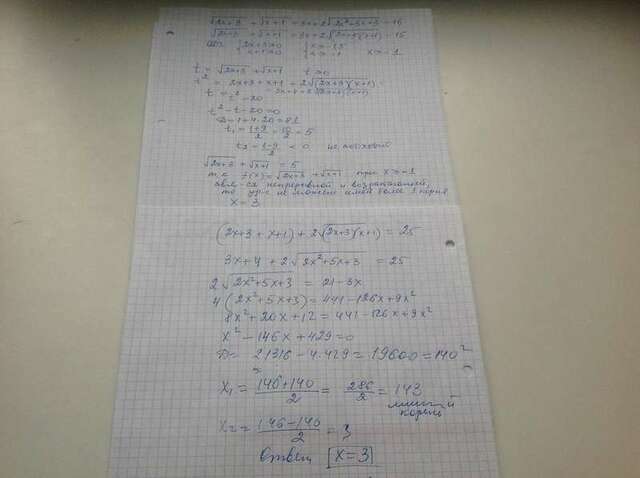 √2x+3 + √x+1 = 3x+2√2x²+5x+3 - 16
√2x+3 + √x+1 = 3x+2√(2x+3)(x+1) - 16
ОДЗ: { 2x+3≥0 { x≥-1,5 x≥-1
x+1≥0 x≥-1
t = √2x+3 + √x+1 t≥0
t² = 2x+3+x+1+2√(2x+3)(x+1) =
= 3x+4+2√(2x+3)(x+1)
t = t² - 20
t² - t - 20 = 0
D = 1+4·20 = 81
t₁ = 1+9/2 = 10/2 = 5
t₂ = 1-9/2 < 0 не подходит
√2x+3 + √x+1 = 5
т.к. f(x) = √2x+3 + √x+1 при x≥-1
явл-ся непрерывной и возрастающей,
то ур-е не может иметь более 1 корня
x = 3
(2x+3 + x+1) + 2√(2x+3)(x+1) = 25
3x+4 + 2√2x²+5x+3 = 25
2√2x²+5x+3 = 21-3x
4(2x²+5x+3) = 441-126x+9x²
8x²+20x+12 = 441-126x+9x²
x² - 146x + 429 = 0
D = 21316 - 4·429 = 19600 = 140²
x₁ = 146+140/2 = 286/2 = 143 лишний
корень
x₂ = 146-140/2 = 3
Ответ x=3